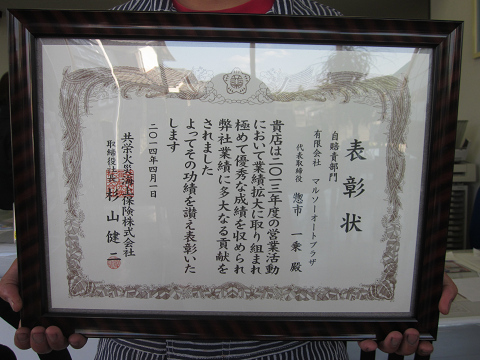 表彰状
自賠責部門
有限会社 マルソーオートプラザ
代表取締役 惣市 一乗 殿
貴店は二〇一三年度の営業活動
において業績拡大に取り組まれ
極めて優秀な成績を収められ
弊社業績に多大なる貢献を
されました
よってその功績を讃え表彰いた
します
二〇一四年四月一日
共栄火災海上保険株式会社
取締役社長 杉山健二